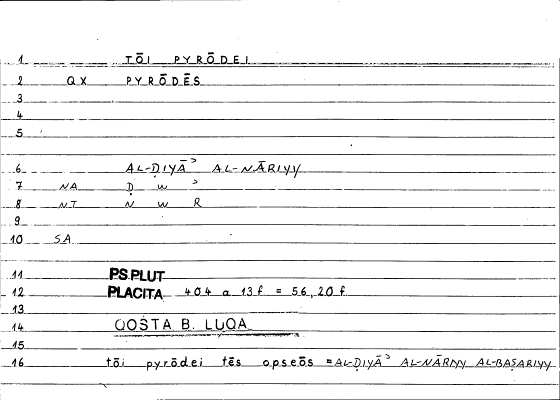 1 TŌI PYRŌDEI
2 QX PYRŌDĒS
3
4
5
6 AL-ḌIYĀʾ AL-NĀRIYY
7 NA Ḍ W ʾ
8 NT N W R
9
10 SA
11 PS.PLUT
12 PLACITA 404 a 13f = 56,20f
13
14 QOSTA B. LUQA
15
16 tōi pyrōdei tēs opseōs = AL-ḌIYĀʾ AL-NĀRIYY AL-BAṢARIYY